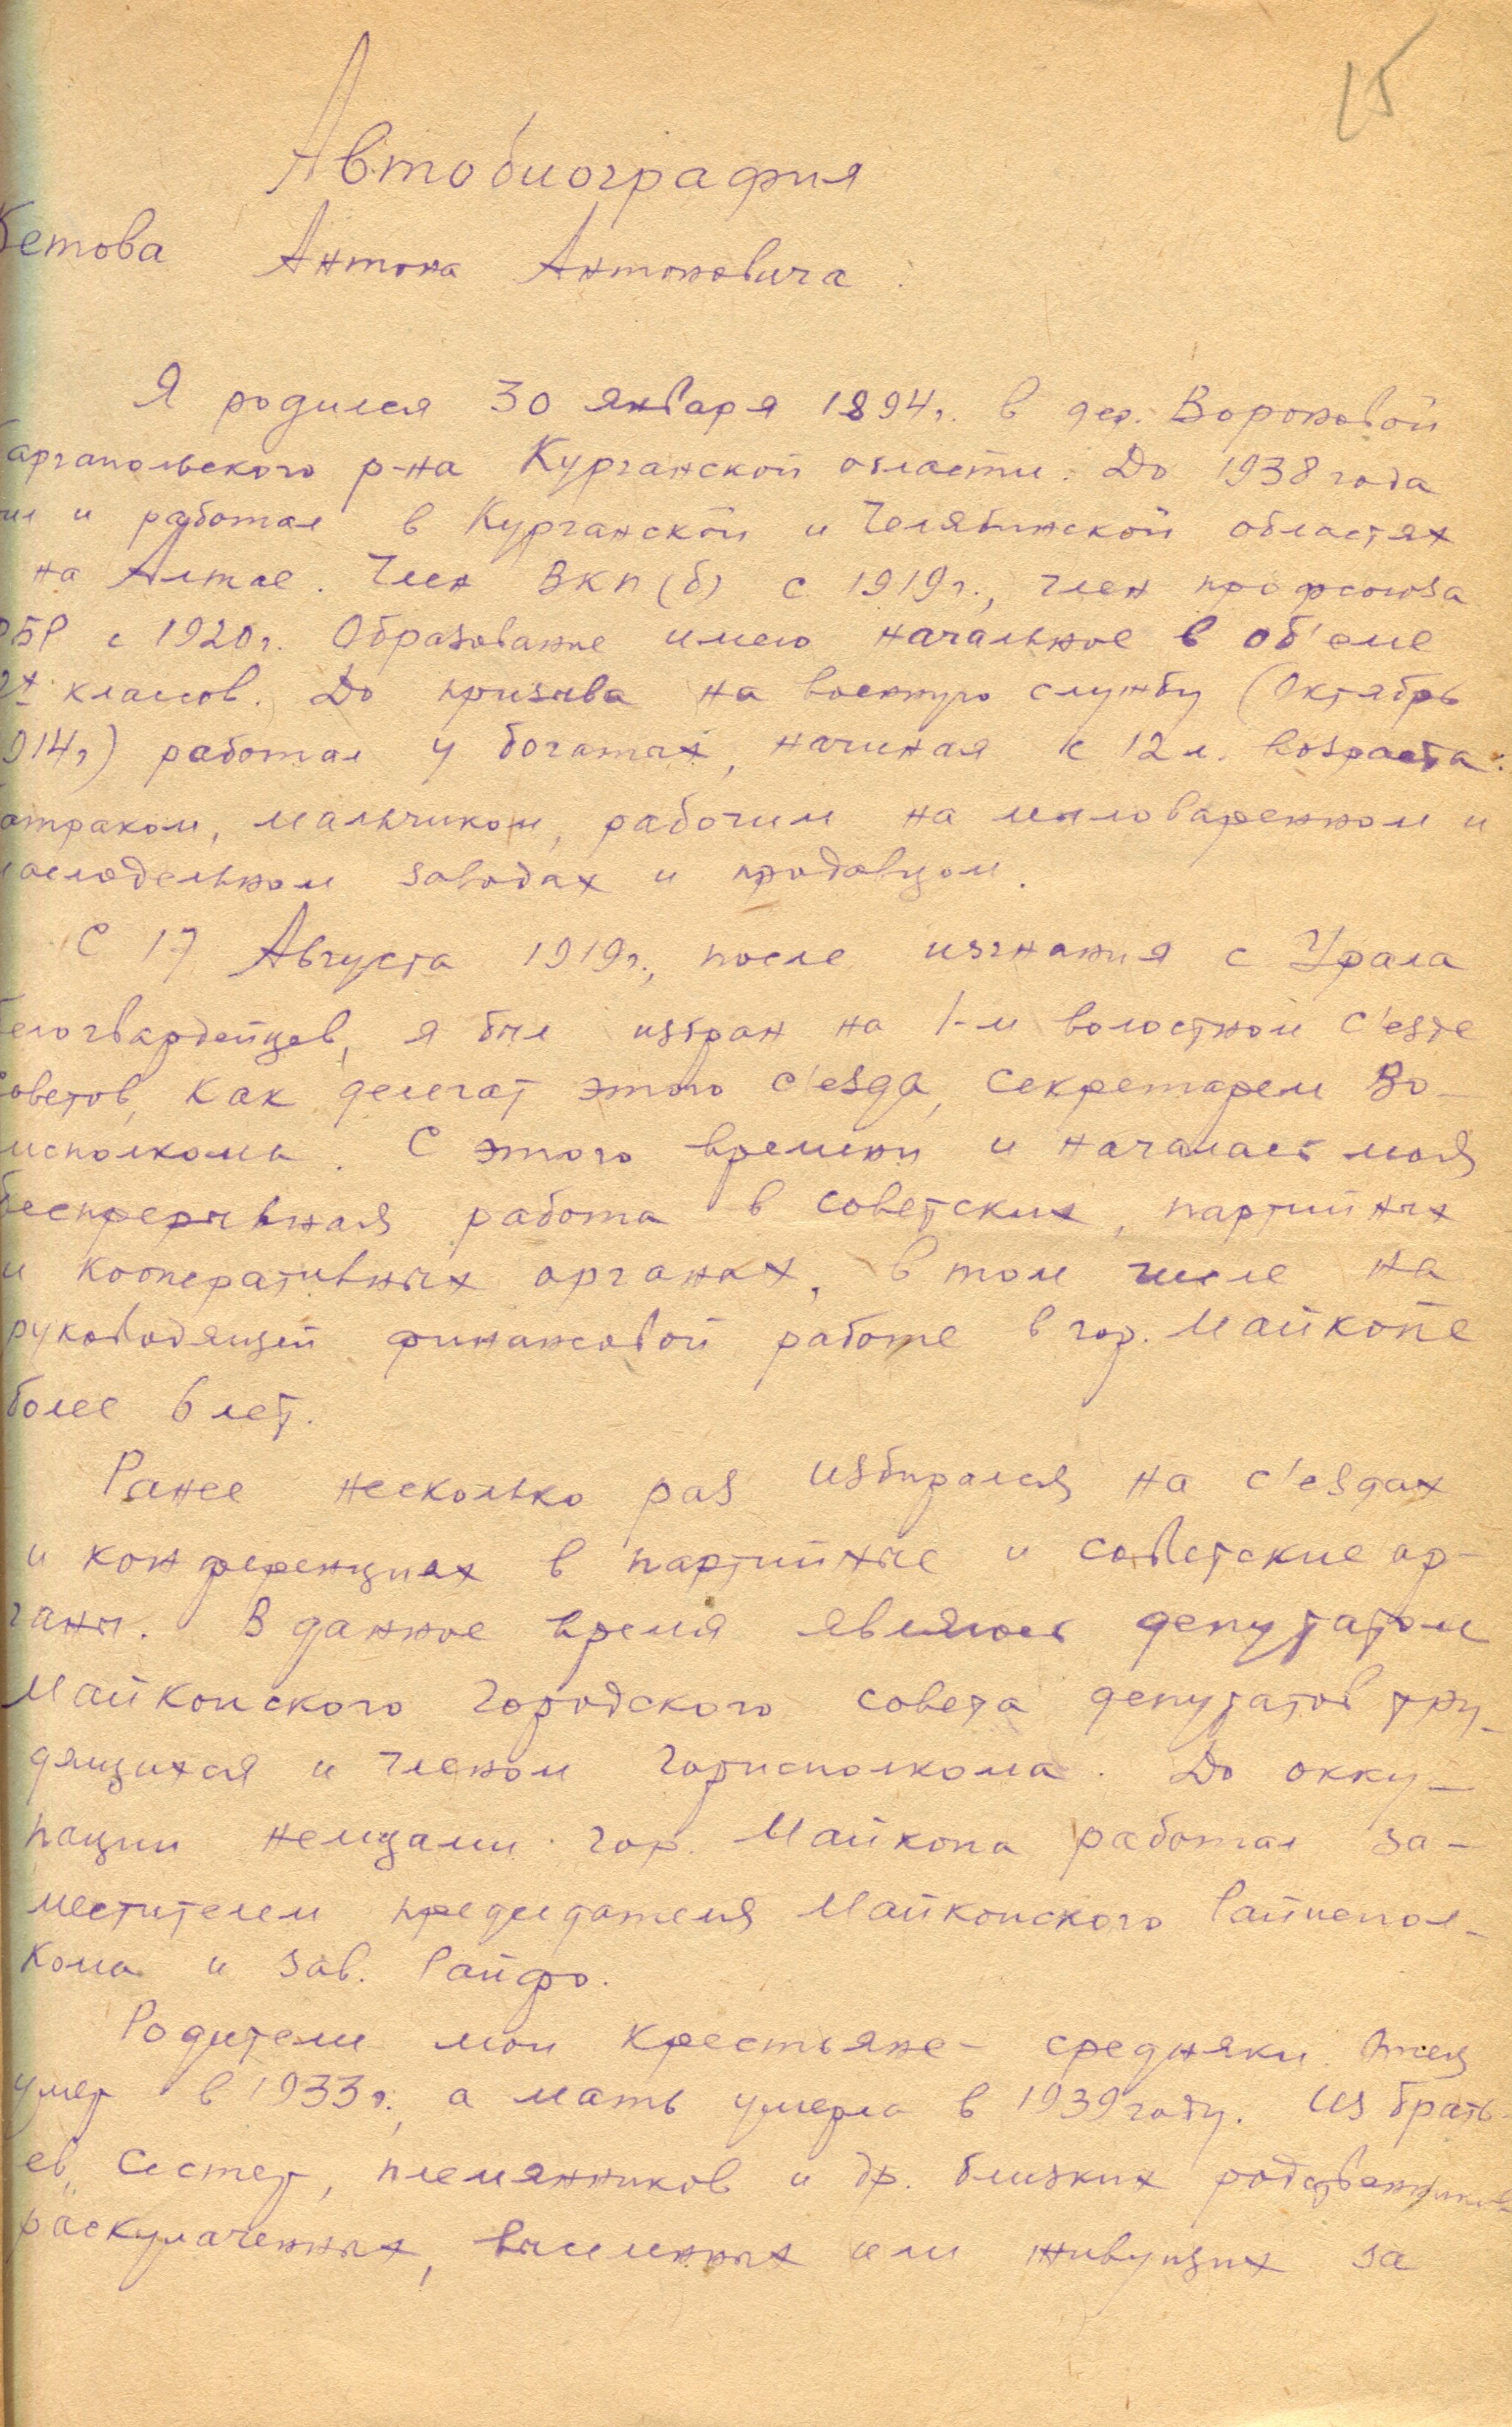 15
Автобиография
Кетова Антона Антоновича.
Я родился 30 января 1894г. в дер. Вороновой
Каргапольского р-на Курганской области. До 1938 года
жил и работал в Курганской и Челябинской областях
на Алтае. Член ВКП(б) с 1919г., член профсоюза
с 1920г. Образование имею начальное в об'еме
классов. До призыва на военную службу (Октябрь
1914г) работал у богатых, начиная с 12 л. возраста:
батраком, мальчиком, рабочим на мыловаренном и
маслодельном заводах и продавцом.
С 17 Августа 1919г., после изгнания с Урала
белогвардейцев, я был избран на 1-м волостном с'езде
советов, как делегат этого с'езда, секретарем Во-
исполкома. С этого времени и началась моя
беспрерывная работа в советских, партийных
и кооперативных органах, в том числе на
руководящей финансовой работе в гор. Майкопе
более 6 лет.
Ранее несколько раз избирался на с'ездах
и конференциях в партийные и советские ор-
ганы. В данное время являюсь депутатом
Майкопского городского совета депутатов тру-
дящихся и членом горисполкома. До окку-
пации немцами гор. Майкопа работал за-
местителем председателя Майкопского Райиспол-
кома и зав. Райфо.
Родители мои крестьяне- средняки. Отец
умер в 1933г., а мать умерла в 1939 году. Из брать-
ев, сестер, племянников и др. близких родственников
раскулаченных, высланных или живущих за